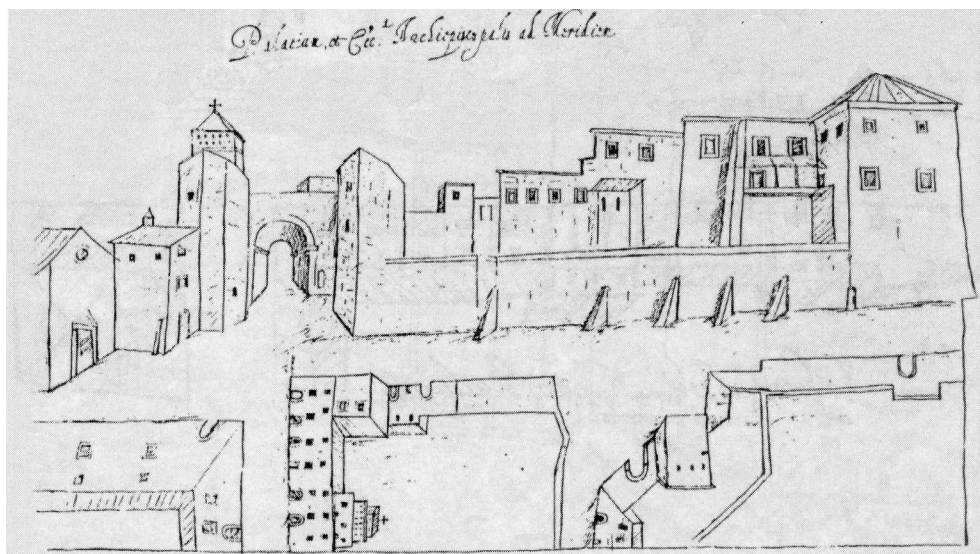 Palatium, et Ecc.ᵃ Archiepiscopalis ad Meridiem